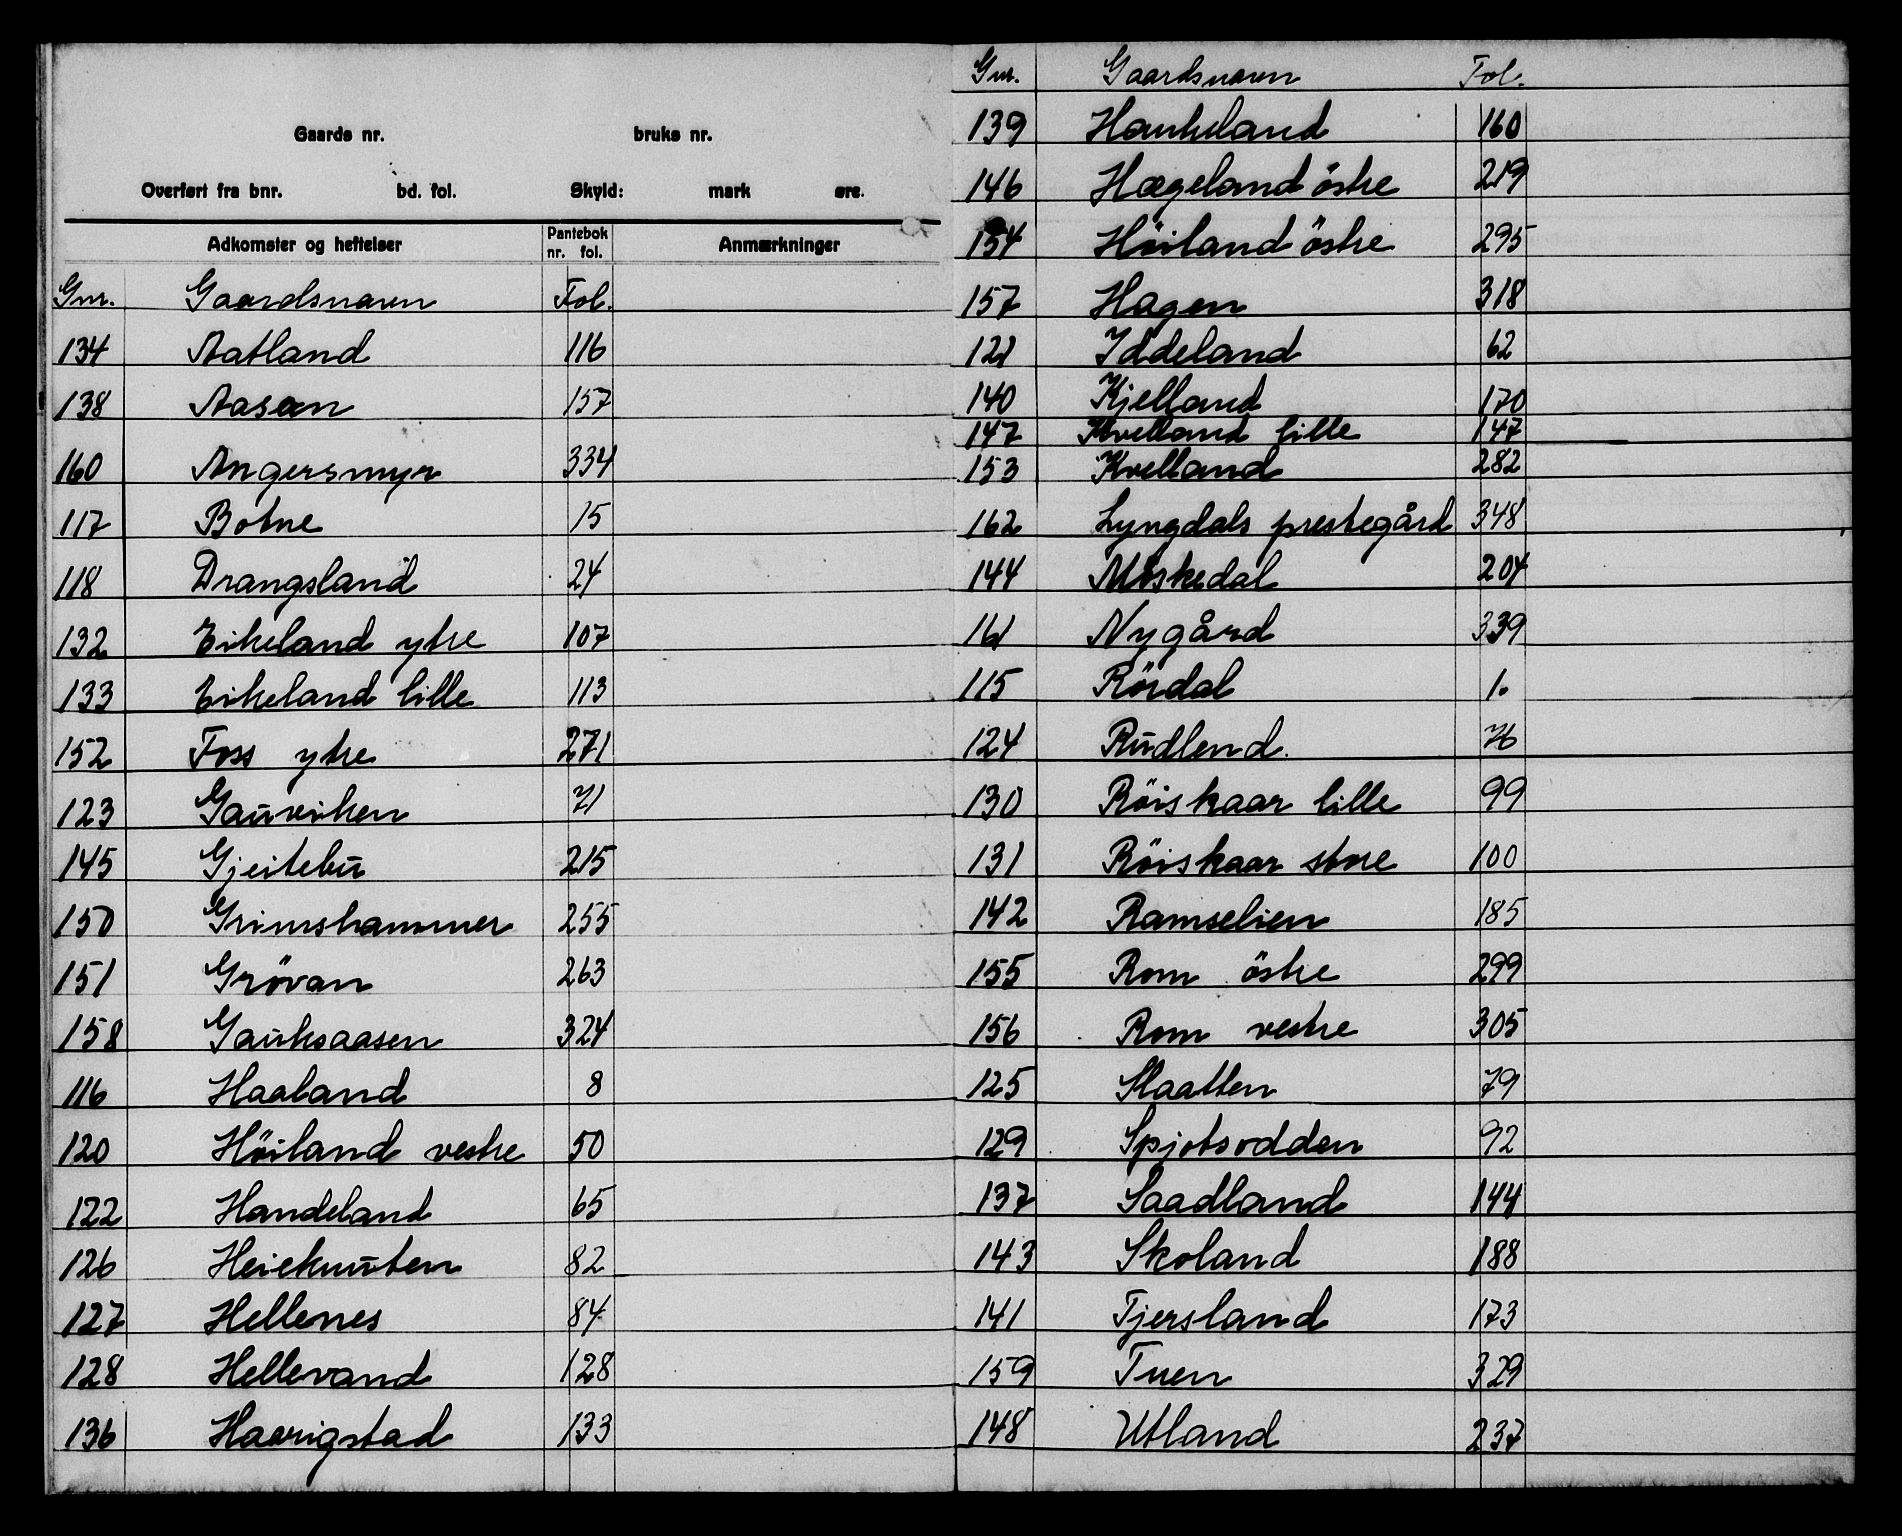 Gaards nr. bruks nr.
Overført fra bnr. bd. fol. Skyld: mark øre.
Adkomster og heftelser Pantebok nr. fol. Anmærkninger
Gnr. Gaardsnavn Fol.
134 Aatland 116
138 Aasen 157
160 Angersmyr 334
117 Botne 15
118 Drangsland 24
132 Eikeland ytre 107
133 Eikeland lille 113
152 Foss ytre 271
123 Gauviken 71
145 Gjeitebu 215
150 Grimshammer 255
151 Grövan 263
158 Gauksaasen 324
116 Haaland 8
120 Höiland vestre 50
122 Handeland 65
126 Heieknuten 82
127 Hellenes 84
128 Hellevand 128
136 Haarigstad 133
Gnr. Gaardsnavn Fol.
139 Haukeland 160
146 Hægeland östre 219
154 Höiland östre 295
157 Hagen 318
121 Iddeland 62
140 Kjelland 170
147 Kvelland lille 147
153 Kvelland 282
162 Lyngdals prestegård 348
144 Möskedal 204
161 Nygård 339
115 Rördal 1.
124 Rudlend. 76
130 Röiskaar lille 99
131 Röiskaar store 100
142 Ramselien 185
155 Rom östre 299
156 Rom vestre 305
125 Slaatten 79
129 Spjotsodden 92
137 Saadland 144
143 Skoland 188
141 Tjersland 173
159 Tuen 329
148 Utland 237